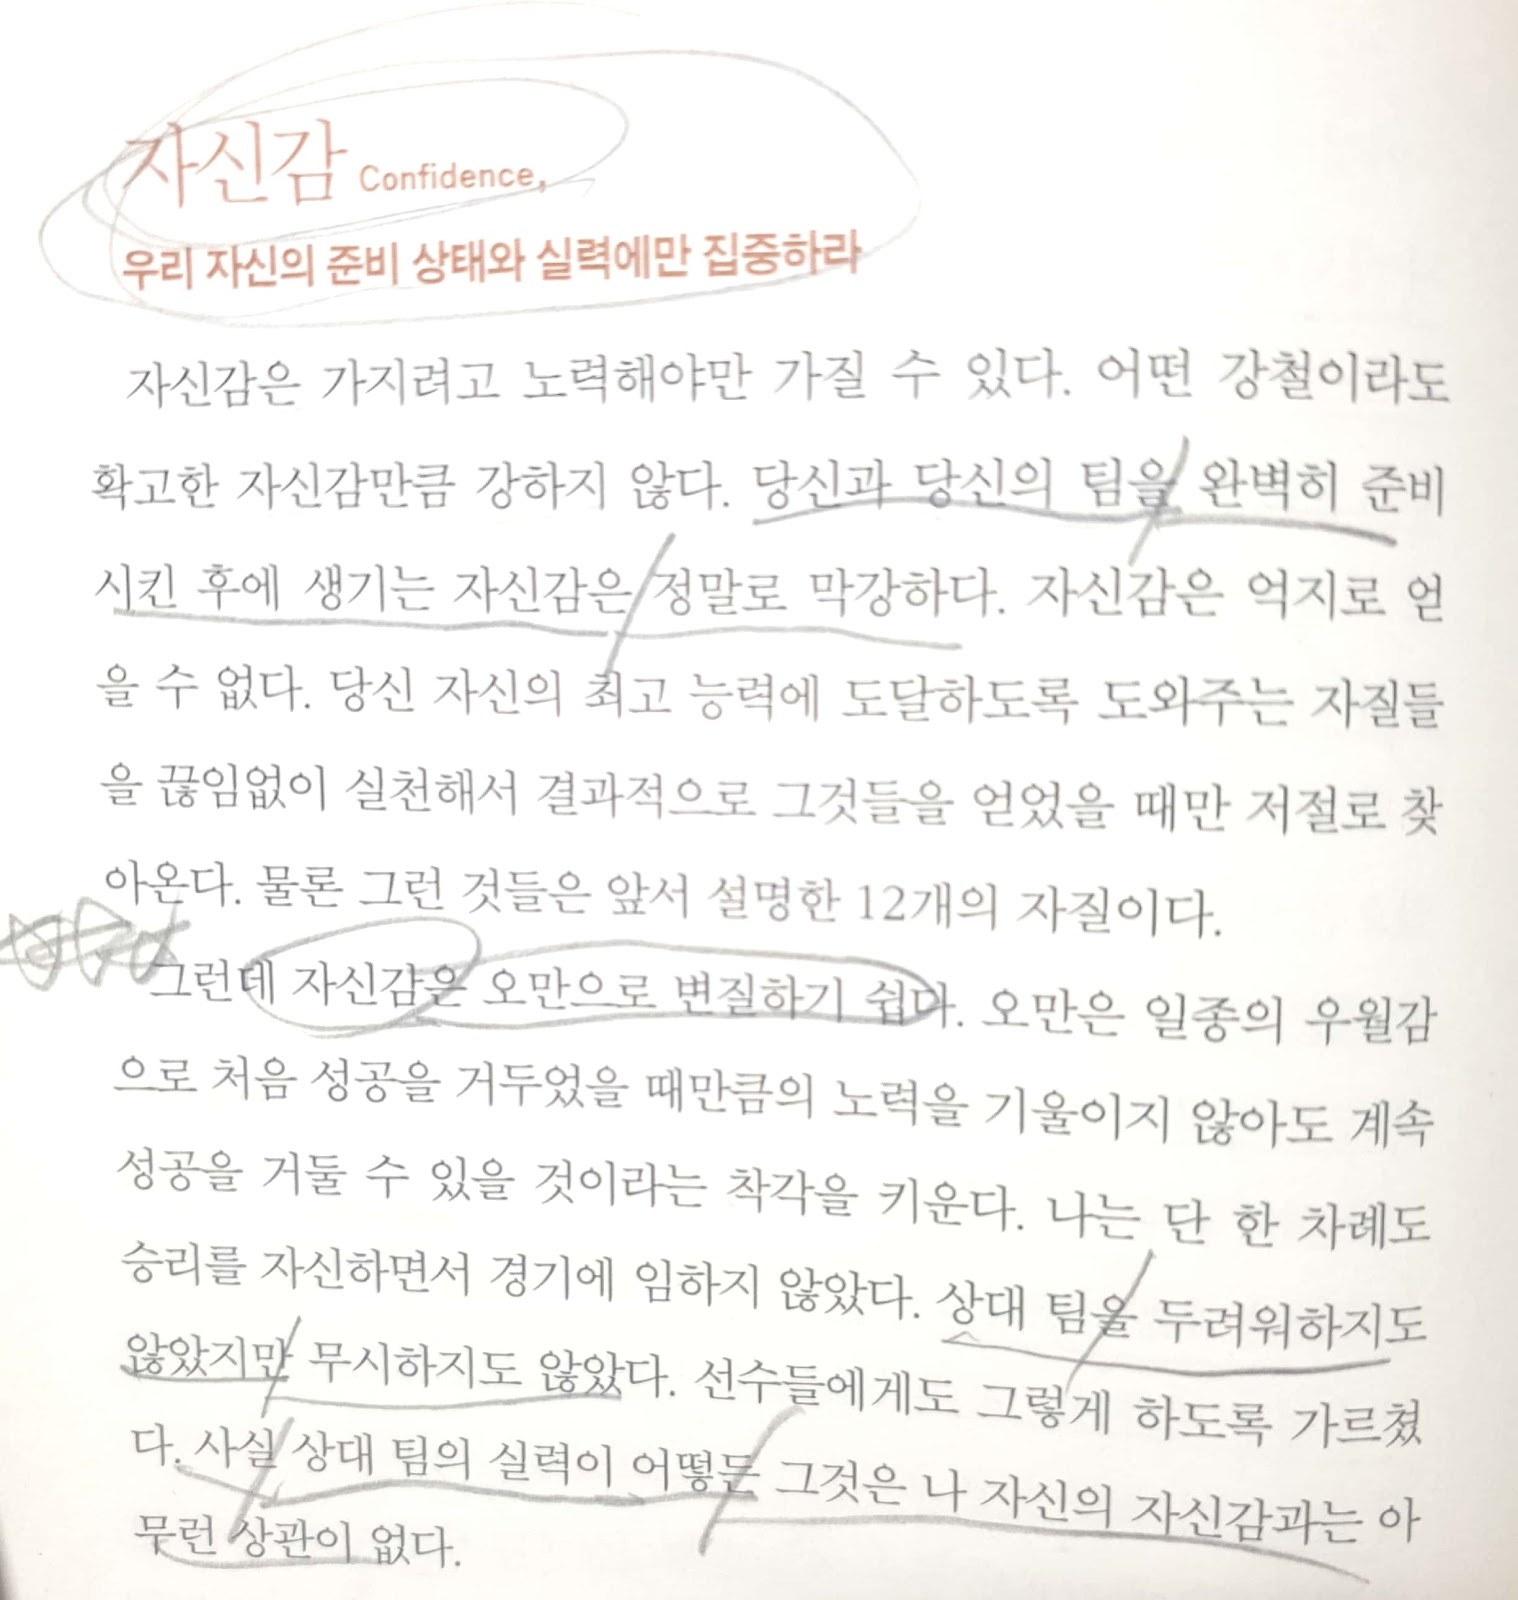 자신감 Confidence,
우리 자신의 준비 상태와 실력에만 집중하라
자신감은 가지려고 노력해야만 가질 수 있다. 어떤 강철이라도
확고한 자신감만큼 강하지 않다. 당신과 당신의 팀을 완벽히 준비
시킨 후에 생기는 자신감은 정말로 막강하다. 자신감은 억지로 얻
을 수 없다. 당신 자신의 최고 능력에 도달하도록 도와주는 자질들
을 끊임없이 실천해서 결과적으로 그것들을 얻었을 때만 저절로 찾
아온다. 물론 그런 것들은 앞서 설명한 12개의 자질이다.
그런데 자신감은 오만으로 변질하기 쉽다. 오만은 일종의 우월감
으로 처음 성공을 거두었을 때만큼의 노력을 기울이지 않아도 계속
성공을 거둘 수 있을 것이라는 착각을 키운다. 나는 단 한 차례도
승리를 자신하면서 경기에 임하지 않았다. 상대 팀을 두려워하지도
않았지만 무시하지도 않았다. 선수들에게도 그렇게 하도록 가르쳤
다. 사실 상대 팀의 실력이 어떻든 그것은 나 자신의 자신감과는 아
무런 상관이 없다.